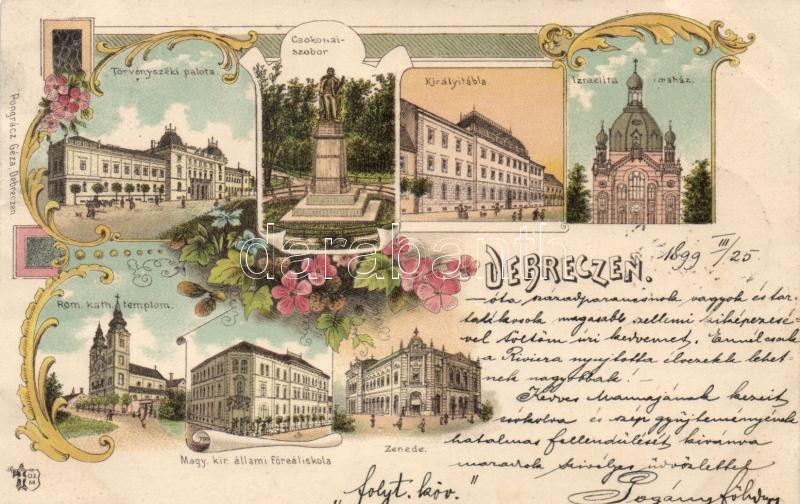 Törvényszéki palota.
Csokonai-
szobor
Királyitábla
Izraelita imaház.
Pongrácz Géza Debreczen.
darabanth.com
DEBRECZEN.
1899 III/25
Róm. kath. templom.
Magy. kir. állami főreáliskola
Zenede.
óta szaradparancsnok vagyok és tar-
talékosok magasabb szellemi kiképezésé-
vel töltöm úri kedvemet. Ennél csak
a Riviera nyujtotta élvezetek lehet-
nek nagyobbak!
Kedves Mamájának kezeit
csókolva és szép gyüjteményének
hatalmas fellendülését kivánva
maradok szivélyes üdvözlettel
"folyt. köv."